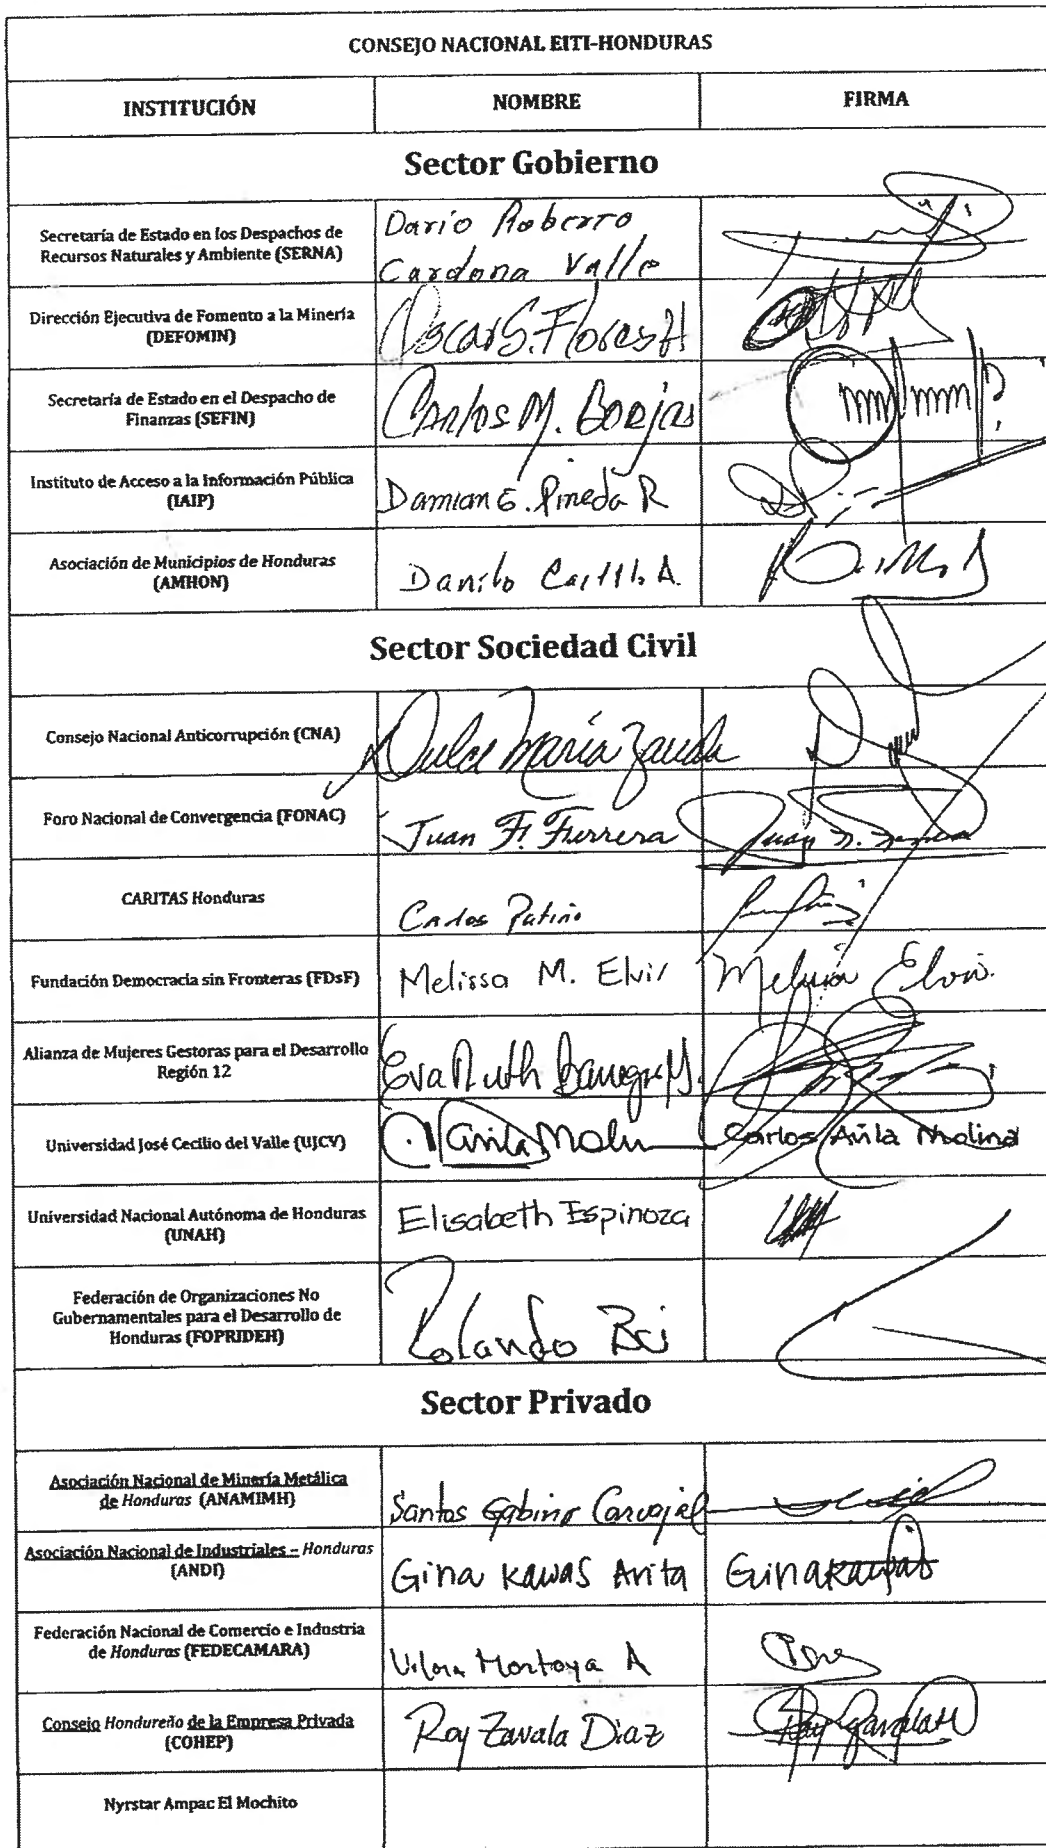 CONSEJO NACIONAL EITI-HONDURAS
INSTITUCIÓN NOMBRE FIRMA
Sector Gobierno
Secretaría de Estado en los Despachos de
Recursos Naturales y Ambiente (SERNA)
Dario Roberto
Cardona Valle
Dirección Ejecutiva de Fomento a la Minería
(DEFOMIN)
Oscar S. Flores H
Secretaría de Estado en el Despacho de
Finanzas (SEFIN)
Carlos M. Borjas
Instituto de Acceso a la Información Pública
(IAIP)
Damian E. Pineda R
Asociación de Municipios de Honduras
(AMHON)
Danilo A.
Sector Sociedad Civil
Consejo Nacional Anticorrupción (CNA)
Dulce María Zavala
Foro Nacional de Convergencia (FONAC)
Juan F. Ferrera
CARITAS Honduras
Carlos Patiño
Fundación Democracia sin Fronteras (FDsF)
Melissa M. Elvir Elvir
Alianza de Mujeres Gestoras para el Desarrollo
Región 12
Eva Ruth
Universidad José Cecilio del Valle (UJCV)
Carlos Avila Molina
Universidad Nacional Autónoma de Honduras
(UNAH)
Elisabeth Espinoza
Federación de Organizaciones No
Gubernamentales para el Desarrollo de
Honduras (FOPRIDEH)
Rolando
Sector Privado
Asociación Nacional de Minería Metálica
de Honduras (ANAMIMH)
Santos Gabino Carvajal
Asociación Nacional de Industriales – Honduras
(ANDI)
Gina Kawas Arita Gina Kawas
Federación Nacional de Comercio e Industria
de Honduras (FEDECAMARA)
Montoya A
Consejo Hondureño de la Empresa Privada
(COHEP)
Roy Zavala Diaz
Nyrstar Ampac El Mochito